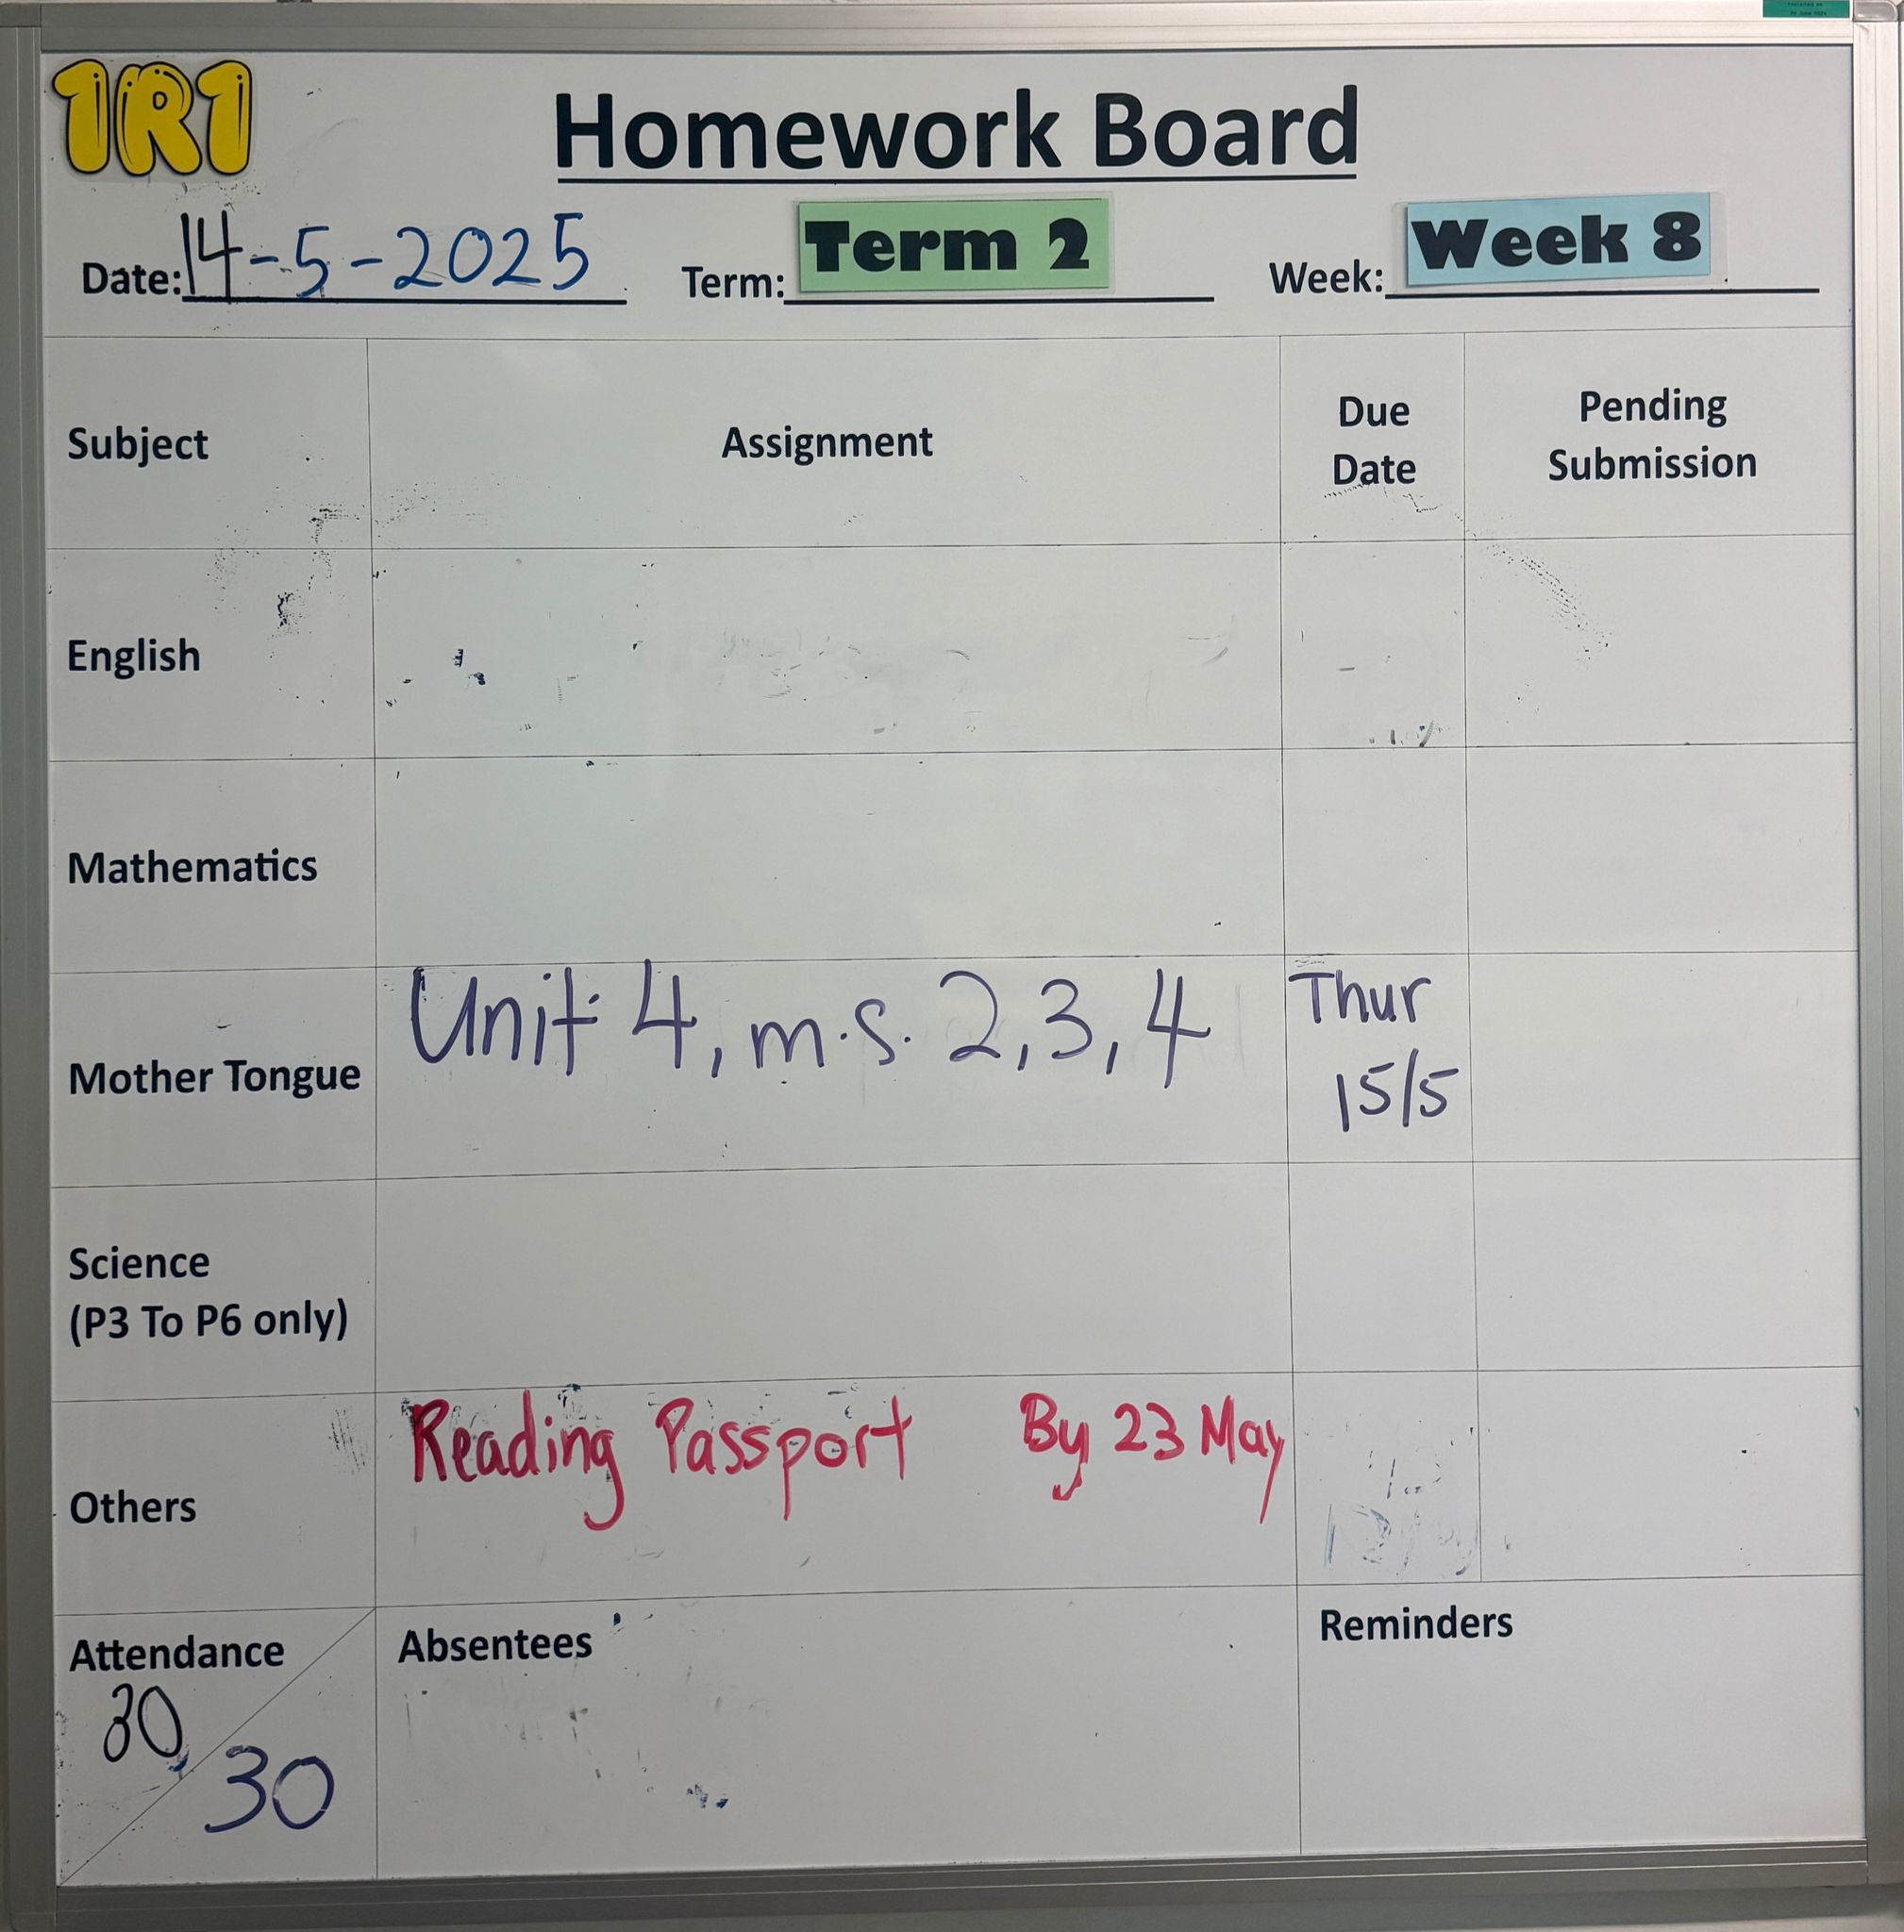 1R1
Homework Board
Date: 14-5-2025 Term: Term 2 Week: Week 8
Subject Assignment Due Date Pending Submission
English
Mathematics
Mother Tongue Unit 4, m.s. 2,3,4 Thur 15/5
Science
(P3 To P6 only)
Others Reading Passport By 23 May
Attendance Absentees Reminders
30
30